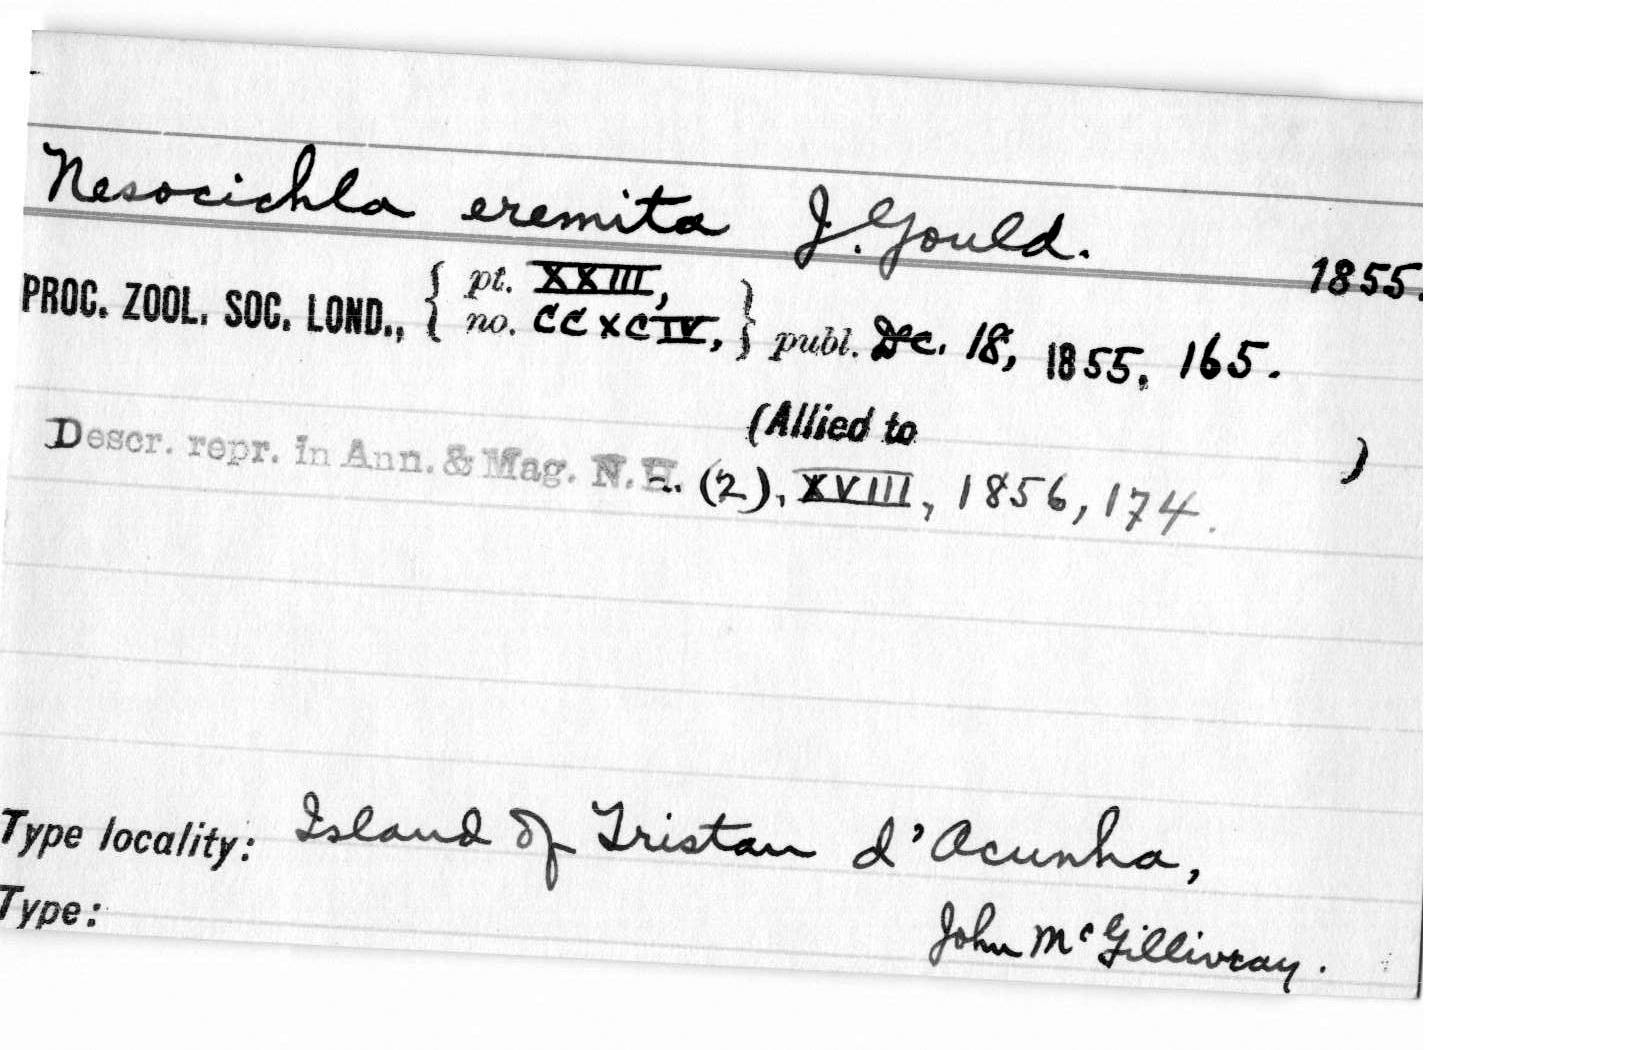 Nesocichla eremita J. Gould.
1855.
PROC. ZOOL. SOC. LOND., { pt. XXIII, no. CCXCIV, } publ. Dec. 18, 1855, 165.
(Allied to )
Descr. repr. in Ann. & Mag. N.H. (2), XVIII, 1856, 174.
Type locality: Island of Tristan d'Acunha,
John McGillivray.
Type: